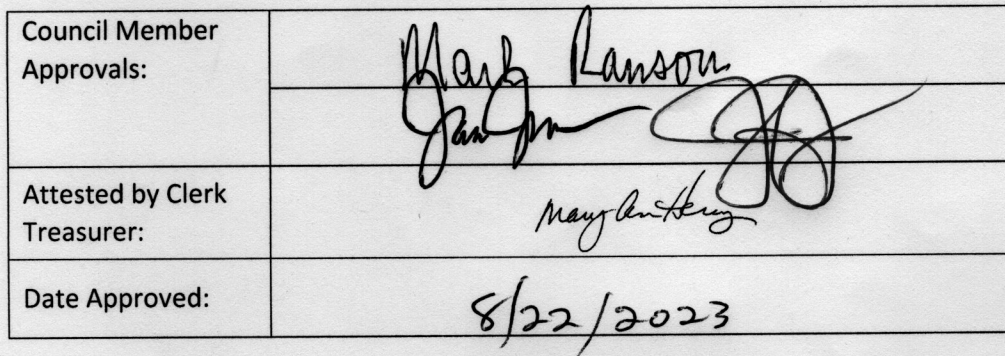 Council Member
Approvals:
Mark Ranson
Attested by Clerk
Treasurer:
Mary Ann Henry
Date Approved:
8/22/2023